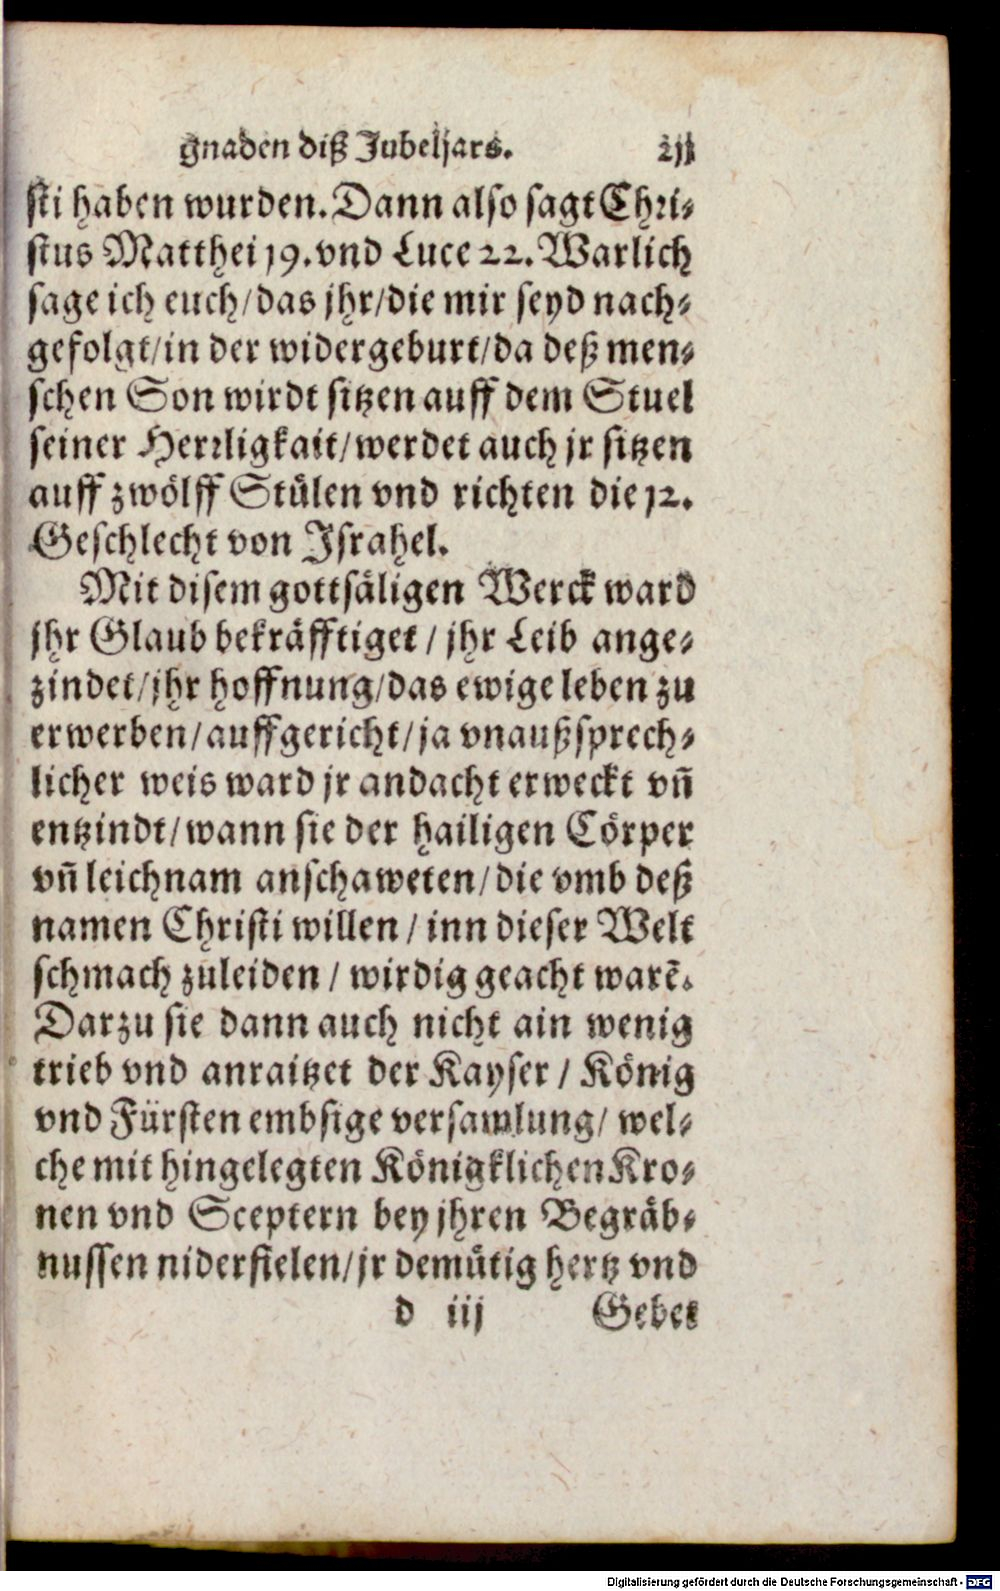 gnaden diß Jubeljars.
sti haben wurden. Dann also sagt Chri-
stus Matthei 19. vnd Luce 22. Warlich
sage ich euch/das jhr/die mir seyd nach-
gefolgt/in der widergeburt/da deß men-
schen Son wirdt sitzen auff dem Stuel
seiner Herrligkait/werdet auch jr sitzen
auff zwölff Stülen vnd richten die 12.
Geschlecht von Israhel.
Mit disem gottsäligen Werck ward
jhr Glaub bekräfftiget / jhr Leib ange-
zindet/jhr hoffnung/das ewige leben zu
erwerben/auffgericht/ja vnaußsprech-
licher weis ward jr andacht erweckt vñ
entzindt/wann sie der hailigen Cörper
vñ leichnam anschaweten/die vmb deß
namen Christi willen / inn dieser Welt
schmach zuleiden / wirdig geacht warē.
Darzu sie dann auch nicht ain wenig
trieb vnd anraitzet der Kayser / König
vnd Fürsten embsige versamlung/ wel-
che mit hingelegten Königklichen Kro-
nen vnd Sceptern bey jhren Begräb-
nussen niderfielen/jr demütig hertz vnd
d iij Gebet
Digitalisierung gefördert durch die Deutsche Forschungsgemeinschaft - DFG